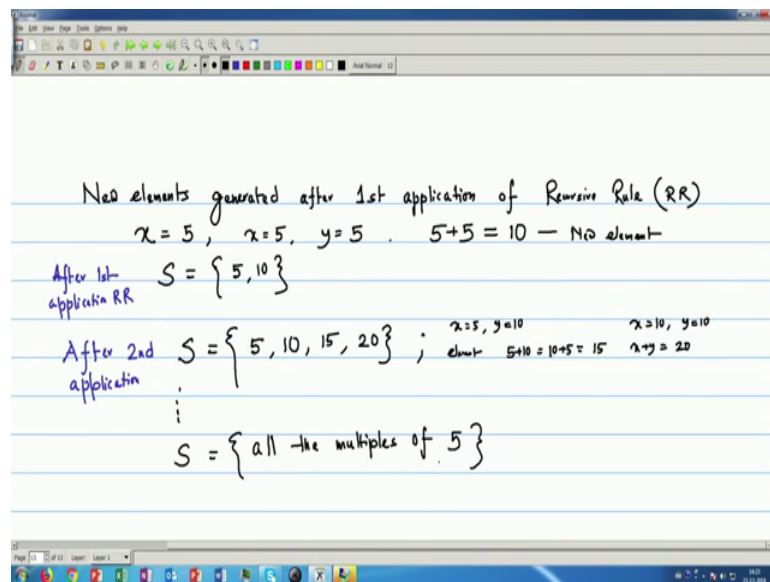 Journal
File Edit View Page Tools Options Help
Arial Normal 12
New elements generated after 1st application of Recursive Rule (RR)
x = 5 , x = 5, y = 5 . 5+5 = 10 — New element
After 1st
applicatin RR
S = { 5, 10 }
After 2nd
applicatin
S = { 5, 10, 15, 20 } ;
x=5, y=10
elemet 5+10 = 10+5 = 15
x=10, y=10
x+y = 20
S = { all the multiples of 5 }
Page 13 of 13 Layer: Layer 1
14:23